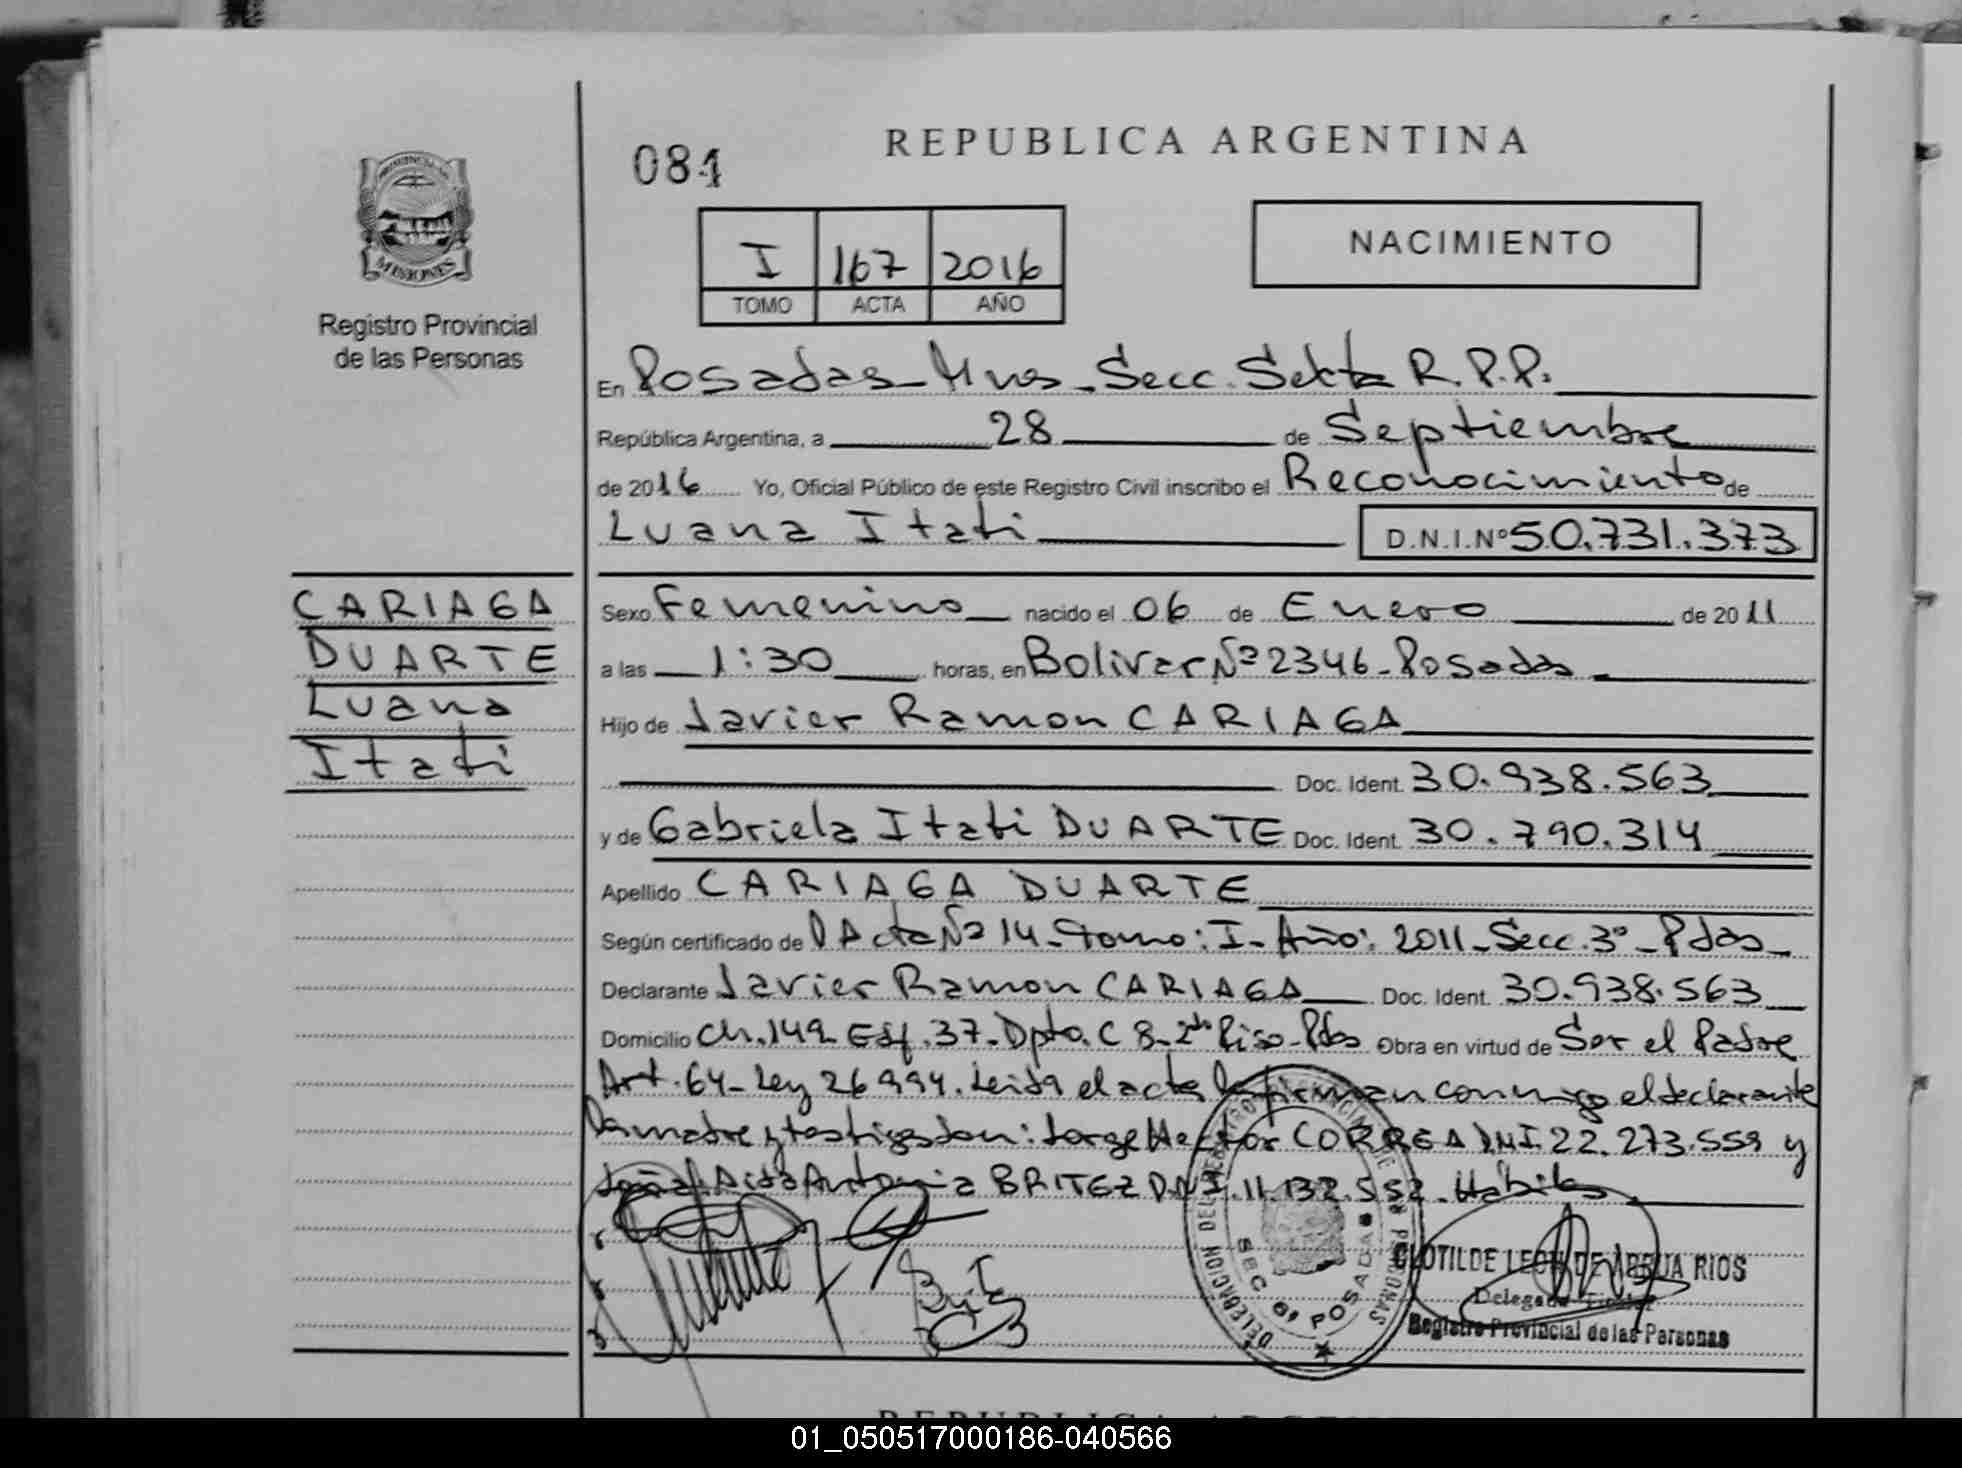 084
REPUBLICA ARGENTINA
PROVINCIA DE
MISIONES
Registro Provincial
de las Personas
I 167 2016
TOMO ACTA AÑO
NACIMIENTO
En Posadas - Mnes - Secc. Sexta R.P.P.
República Argentina, a 28 de Septiembre
de 2016 Yo, Oficial Público de este Registro Civil inscribo el Reconocimiento de
Luana Itati D.N.I.Nº 50.731.373
CARIAGA
DUARTE
Luana
Itati
Sexo Femenino nacido el 06 de Enero de 2011
a las 1:30 horas, en Bolivar Nº 2346 - Posadas
Hijo de Javier Ramon CARIAGA
Doc. Ident. 30.938.563
y de Gabriela Itati DUARTE Doc. Ident. 30.790.314
Apellido CARIAGA DUARTE
Según certificado de Acta Nº 14 - Tomo: I - Año: 2011 - Secc. 3º - Pdas
Declarante Javier Ramon CARIAGA Doc. Ident. 30.938.563
Domicilio Ch. 149 Esf. 37 - Dpto. C 8 - 2do Piso - Pdas Obra en virtud de Ser el Padre
Art. 64 - Ley 26994. Leida el acta la firman conmigo el declarante
la madre y testigos son: Jorge Hector CORREA DNI. 22.273.559 y
Aida Antonia BRITEZ DNI. 11.132.552. Habiles
DELEGACION DEL REGISTRO PROVINCIAL DE LAS PERSONAS
SEC 6ª, POSADAS
CLOTILDE LEON DE ARRUA RIOS
Delegada Titular
Registro Provincial de las Personas
REPUBLICA ARGENTINA
01_050517000186-040566